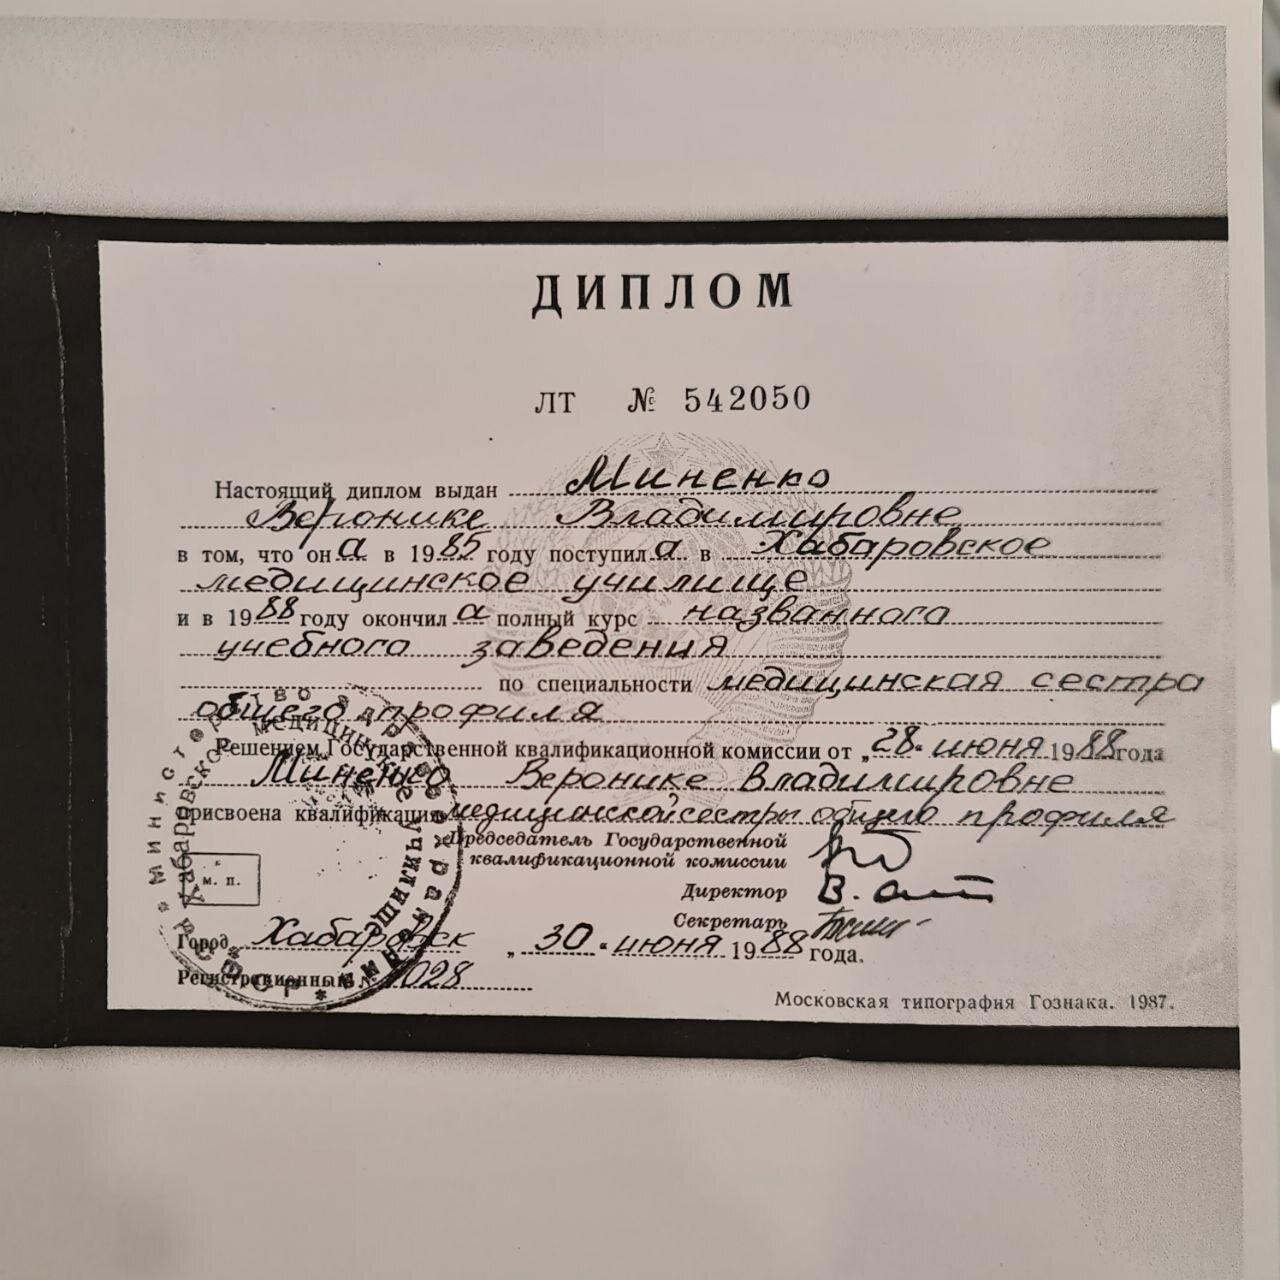 ДИПЛОМ
ЛТ № 542050
Настоящий диплом выдан Миненко
Веронике Владимировне
в том, что он а в 1985 году поступил а в Хабаровское
медицинское училище
и в 1988 году окончил а полный курс названного
учебного заведения
по специальности медицинская сестра
общего профиля
Решением Государственной квалификационной комиссии от „28“ июня 1988 года
Миненко Веронике Владимировне
присвоена квалификация медицинской сестры общего профиля
Председатель Государственной
квалификационной комиссии
Директор
Секретарь
м. п.
Город Хабаровск „30“ июня 1988 года.
Регистрационный № 1028
Московская типография Гознака. 1987.
Министерство здравоохранения
Хабаровское медицинское училище